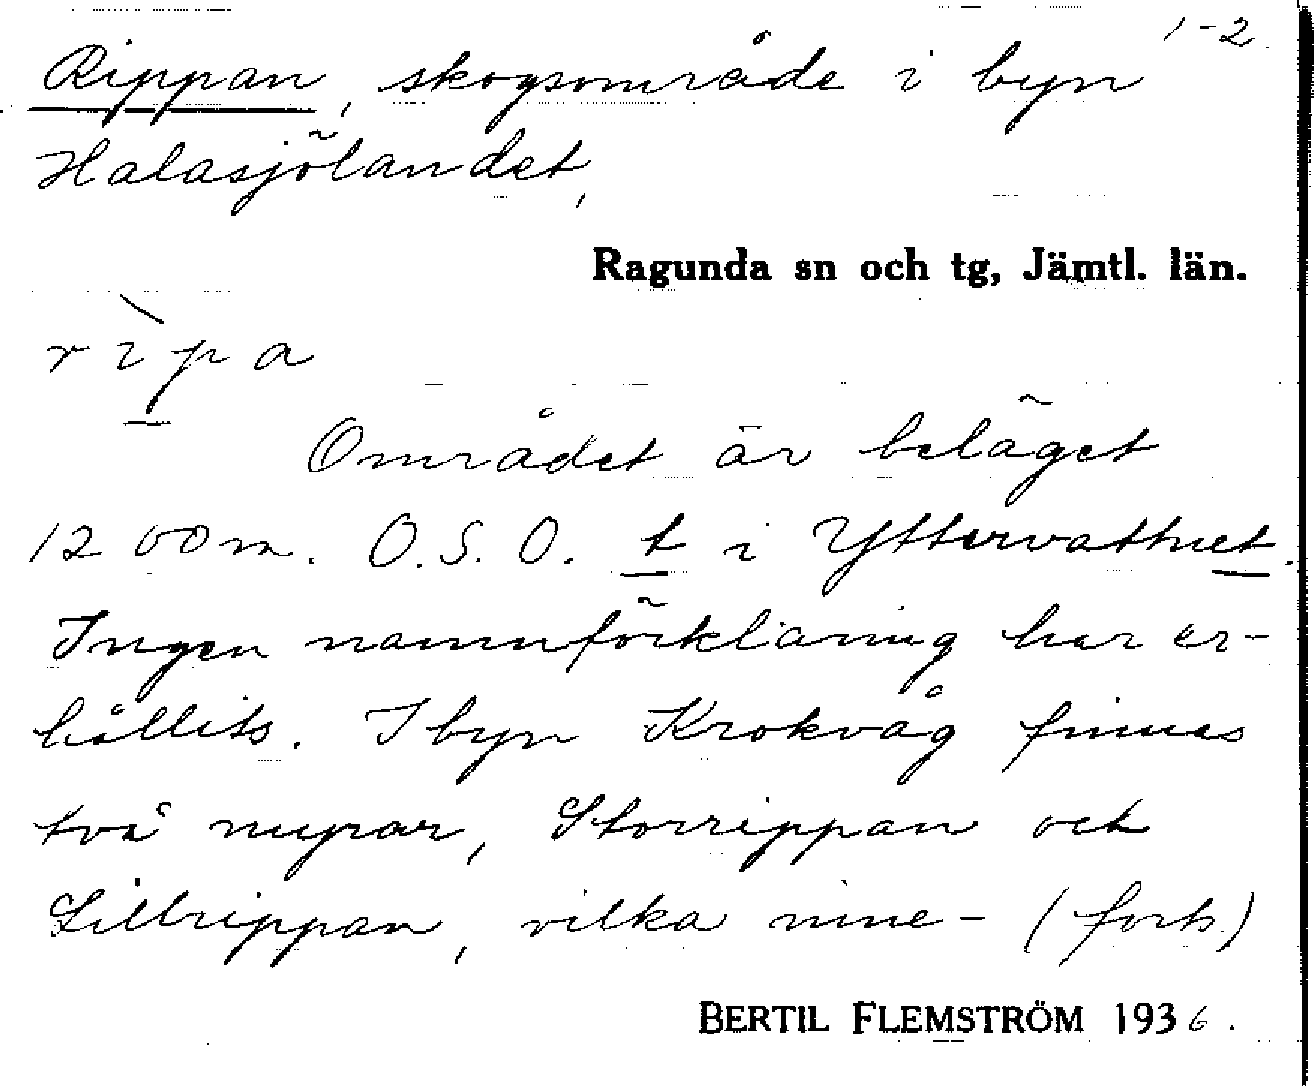 1-2
Rippan, skogsområde i byn
Halasjölandet,
Ragunda sn och tg, Jämtl. län.
rìpa
Området är beläget
1200 m. O.S.O. t i Yttervattnet.
Ingen namnförklaring har er-
hållits. I byn Krokvåg finnes
två nupar, Storrippan och
Lillrippan, vilka mine- (forts.)
BERTIL FLEMSTRÖM 1936.